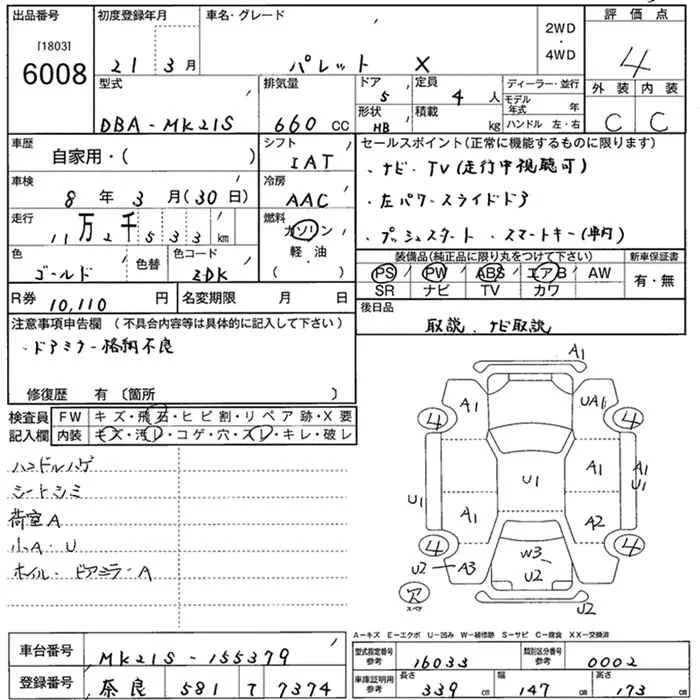 出品番号
[1803]
6008
初度登録年月
21 3月
車名・グレード
パレット X
2WD
・
4WD
評価点
4
外装 内装
C C
型式
DBA-MK21S
排気量
660 CC
ドア
5
定員
4 人
形状
HB
積載
kg
ディーラー・並行
モデル年式 年
ハンドル 左・右
車歴
自家用・( )
シフト
IAT
車検
8年 3月(30日)
冷房
AAC
走行
11万2千533km
燃料
ガソリン
軽・油
( )
色
ゴールド
色替
色コード
ZDK
R券 10,110 円
名変期限 月 日
セールスポイント(正常に機能するものに限ります)
・ナビ・TV(走行中視聴可)
・左パワースライドドア
・プッシュスタート・スマートキー(車内)
装備品(純正品に限り丸をつけて下さい)
PS PW ABS エアB AW
SR ナビ TV カワ
新車保証書
有・無
後日品
取説、ナビ取説
注意事項申告欄(不具合内容等は具体的に記入して下さい)
・ドアミラー格納不良
修復歴 有(箇所 )
検査員
記入欄
FW キズ・飛石・ヒビ割・リペア跡・X要
内装 キズ・汚レ・コゲ・穴・スレ・キレ・破レ
ハンドルハゲ
シートシミ
荷室A
小A・U
ホイル・ドアミラーA
A1
A1 UA1
4 4
U1 U1 A1 A1 U1
A1 A2
4 4
W3
U2 A3 U2
穴
スペア
U2
A−キズ E−エクボ U−凹み W−補修跡 S−サビ C−腐食 XX−交換済
車台番号 MK21S-155379
登録番号 奈良 581 て 7374
型式指定番号
参考
16033
類別区分番号
参考
0002
車庫証明用
参考
長さ 339 cm 幅 147 cm 高さ 173 cm